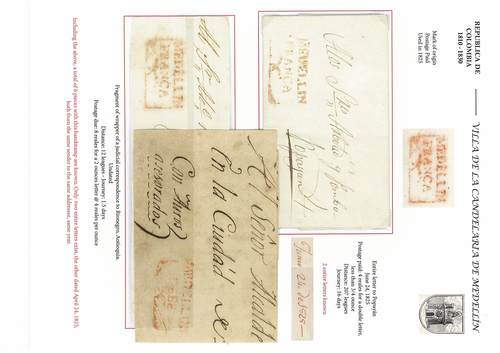 REPUBLICA DE
COLOMBIA
1810 - 1830
VILLA DE LA CANDELARIA DE MEDELLIN
Mark of origin
Postage Paid
Used in 1825
MEDELLIN
FRANCA
MEDELLIN
FRANCA
Popayan
Entire letter to Popayán
June 24, 1825
Postage paid: 6 reales for a double letter,
less than 3/4 ounce
Distance: 207 leagues
Journey: 16 days
2 entire letters known
MEDELLIN
FRANCA
Al Señor Alcalde
En la Ciudad de
Con Autos
asesorados
Fragment of wrapper of a judicial correspondence to Rionegro, Antioquia.
Undated
Distance: 12 leagues - Journey: 1.5 days
Postage due: 8 reales for a 2 ounces letter @ 4 reales per ounce
Including the above, a total of 6 pieces with this handstamp are known. Only two entire letters exist, the other dated April 24, 1825,
both from the same sender to the same addressee, same year.